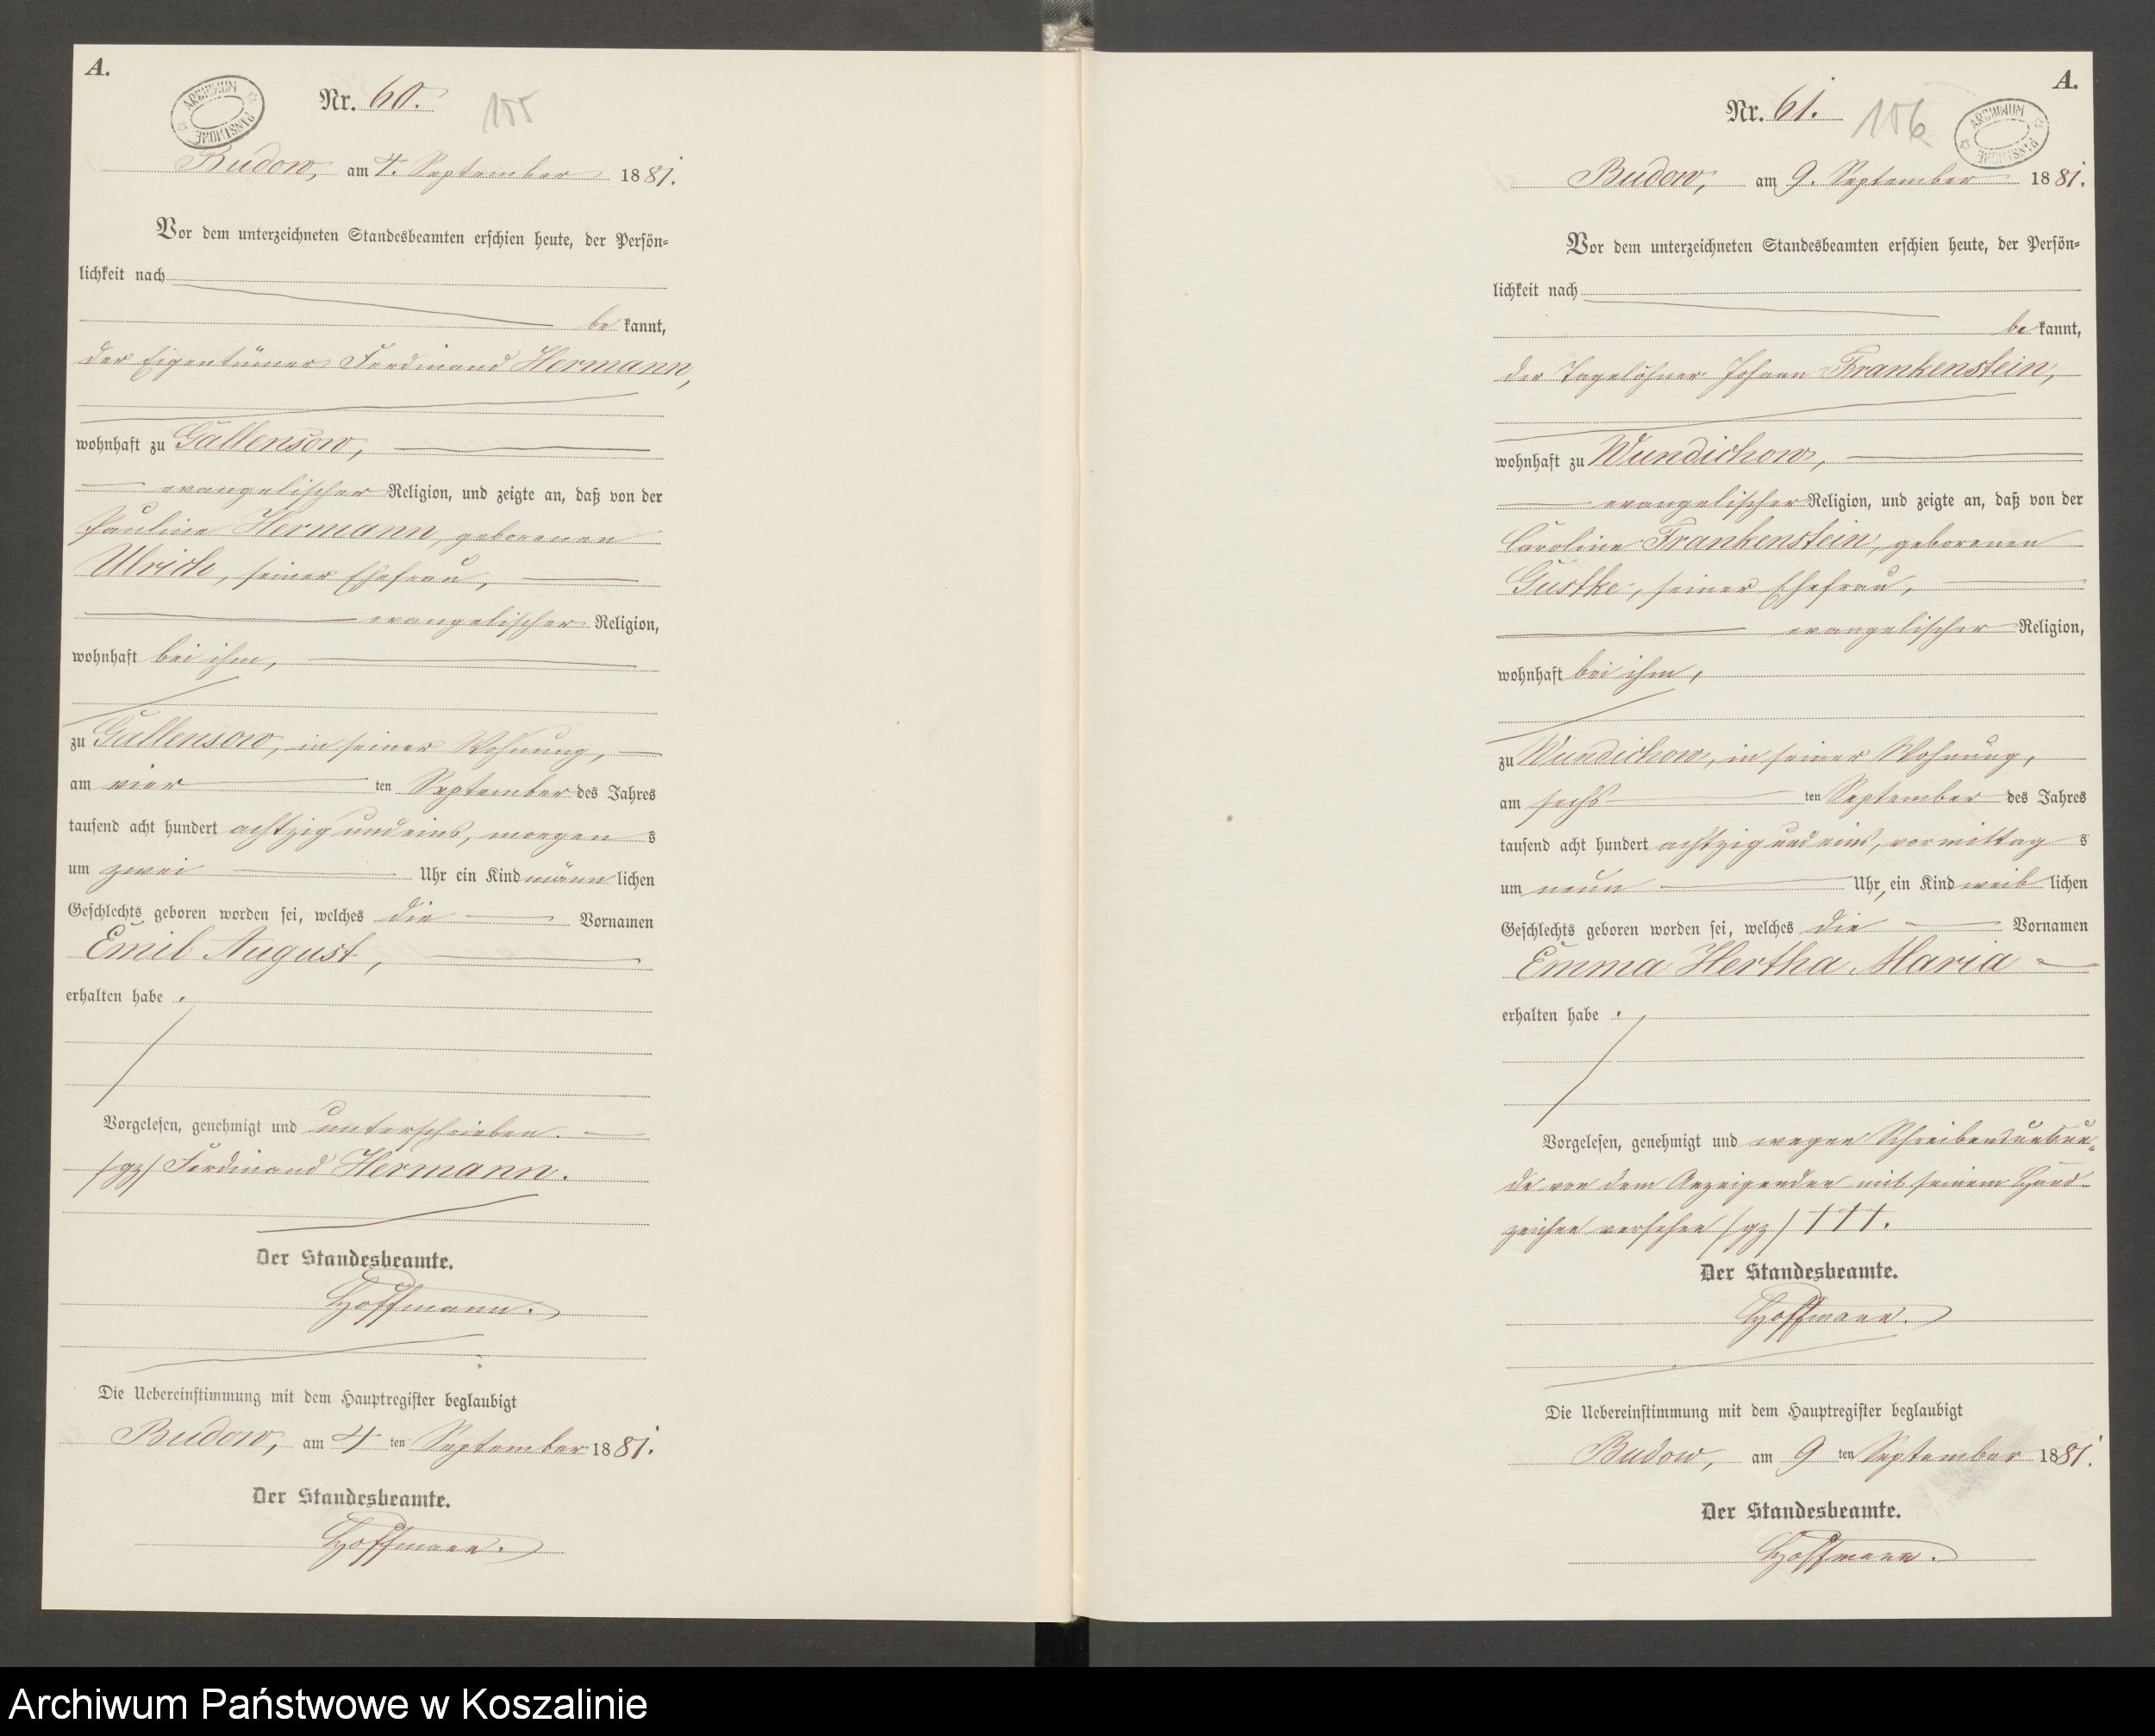 A.
ARCHIWUM PAŃSTWOWE
Nr. 60. 155
Budow, am 4. September 1881.
Vor dem unterzeichneten Standesbeamten erschien heute, der Persön-
lichkeit nach
be kannt,
der Eigentümer Ferdinand Hermann,
wohnhaft zu Gallensow,
evangelischer Religion, und zeigte an, daß von der
Pauline Hermann, geborenen
Ulrich, seiner Ehefrau,
evangelischer Religion,
wohnhaft bei ihm,
zu Gallensow, in seiner Wohnung,
am vier ten September des Jahres
tausend acht hundert achtzig und eins, morgen s
um zwei Uhr ein Kind männ lichen
Geschlechts geboren worden sei, welches die Vornamen
Emil August,
erhalten habe.
Vorgelesen, genehmigt und unterschrieben.
/gz/ Ferdinand Hermann.
Der Standesbeamte.
Hoffmann.
Die Uebereinstimmung mit dem Hauptregister beglaubigt
Budow, am 4 ten September 1881.
Der Standesbeamte.
Hoffmann.
A.
Nr. 61. 156
ARCHIWUM PAŃSTWOWE
Budow, am 9. September 1881.
Vor dem unterzeichneten Standesbeamten erschien heute, der Persön-
lichkeit nach
be kannt,
der Tagelöhner Johann Frankenstein,
wohnhaft zu Wundichow,
evangelischer Religion, und zeigte an, daß von der
Caroline Frankenstein, geborenen
Gustke, seiner Ehefrau,
evangelischer Religion,
wohnhaft bei ihm,
zu Wundichow, in seiner Wohnung,
am sechs ten September des Jahres
tausend acht hundert achtzig und eins, vormittag s
um neun Uhr, ein Kind weib lichen
Geschlechts geboren worden sei, welches die Vornamen
Emma Hertha Maria
erhalten habe.
Vorgelesen, genehmigt und wegen Schreibensunkun-
de von dem Anzeigenden mit seinem Hand-
zeichen versehen /gz/ †††.
Der Standesbeamte.
Hoffmann.
Die Uebereinstimmung mit dem Hauptregister beglaubigt
Budow, am 9 ten September 1881.
Der Standesbeamte.
Hoffmann.
Archiwum Państwowe w Koszalinie